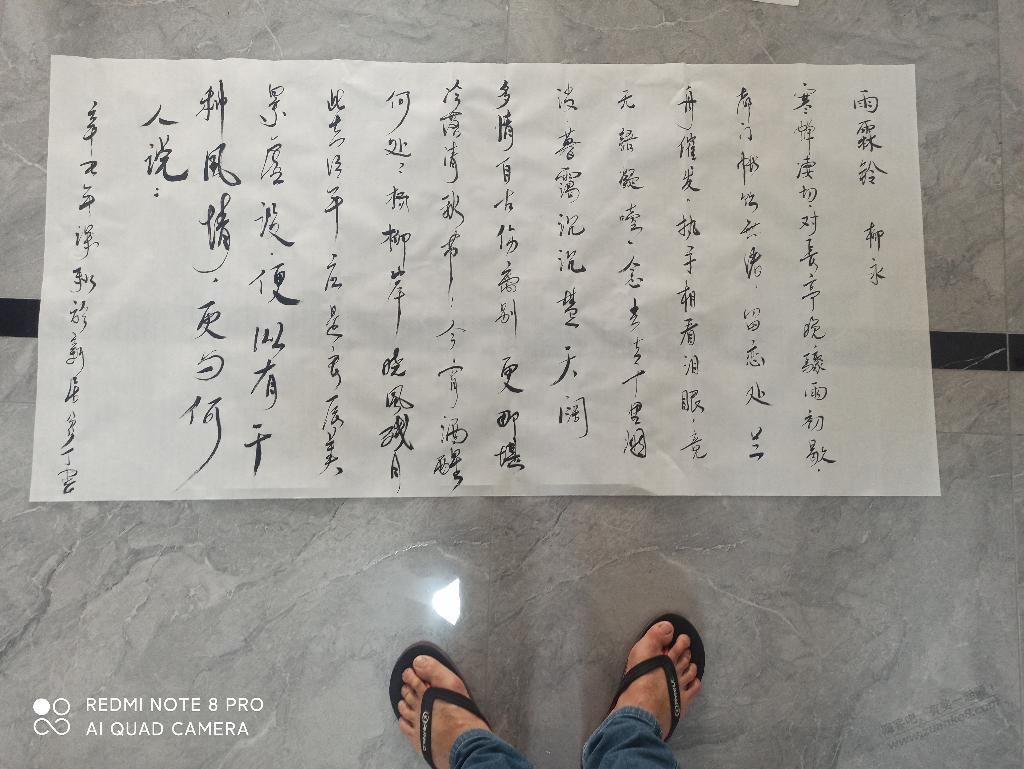 雨霖铃 柳永
寒蝉凄切对長亭晚骤雨初歇.
都门帐饮无绪.留恋处 兰
舟催发.执手相看泪眼.竟
无語凝噎.念去去千里烟
波.暮霭沉沉楚天阔
多情自古伤离别 更那堪
冷落清秋节!今宵酒醒
何处:杨柳岸 晓风残月
此去经年.应是良辰美
景虚设.便纵有千
种风情.更与何
人说:
辛丑年深秋於新居
REDMI NOTE 8 PRO
AI QUAD CAMERA